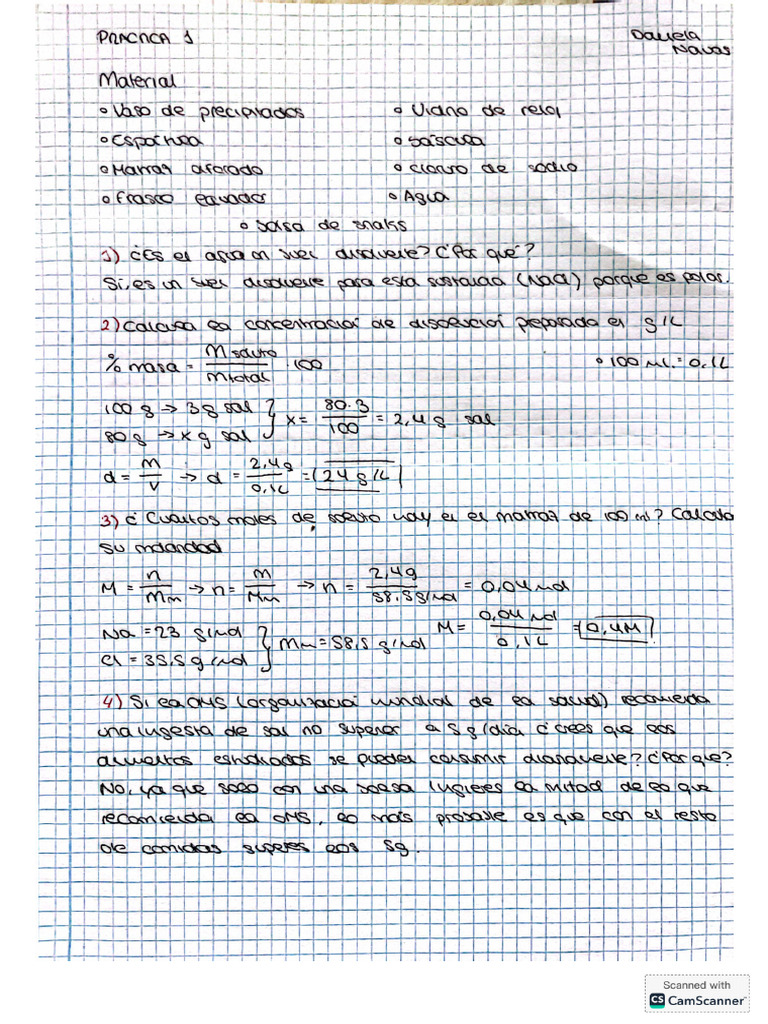 PRÁCTICA 1
Daniela
Navas
Material
∘ Vaso de precipitados ∘ Vidrio de reloj
∘ Espátula ∘ Báscula
∘ Matraz aforado ∘ Cloruro de sodio
∘ Frasco lavador ∘ Agua
∘ Bolsa de snaks
1) ¿Es el agua un buen disolvente? ¿Por qué?
Sí, es un buen disolvente para esta sustancia (NaCl) porque es polar.
2) Calcula la concentración de disolución preparada en g/L
% masa = M soluto / M total · 100 ∘ 100 mL = 0,1L
100 g → 3g sal } x = 80·3 / 100 = 2,4 g sal
80 g → x g sal
d = M / V → d = 2,4g / 0,1L = 24 g/L
3) ¿Cuantos moles de soluto hay en el matraz de 100 ml? Calcula
su molaridad
M = n / Mm → n = M / Mm → n = 2,4g / 58,5g/mol = 0,04 mol
Na = 23 g/mol } Mm = 58,5 g/mol M = 0,04 mol / 0,1L = 0,4M
Cl = 35,5 g/mol
4) Si la OMS (organización mundial de la salud) recomienda
una ingesta de sal no superior a 5 g/día ¿crees que los
alimentos estudiados se pueden consumir diariamente? ¿Por que?
No, ya que solo con una bolsa ingieres la mitad de lo que
recomienda la OMS, lo más probable es que con el resto
de comidas superes los 5g.
Scanned with
CS CamScanner